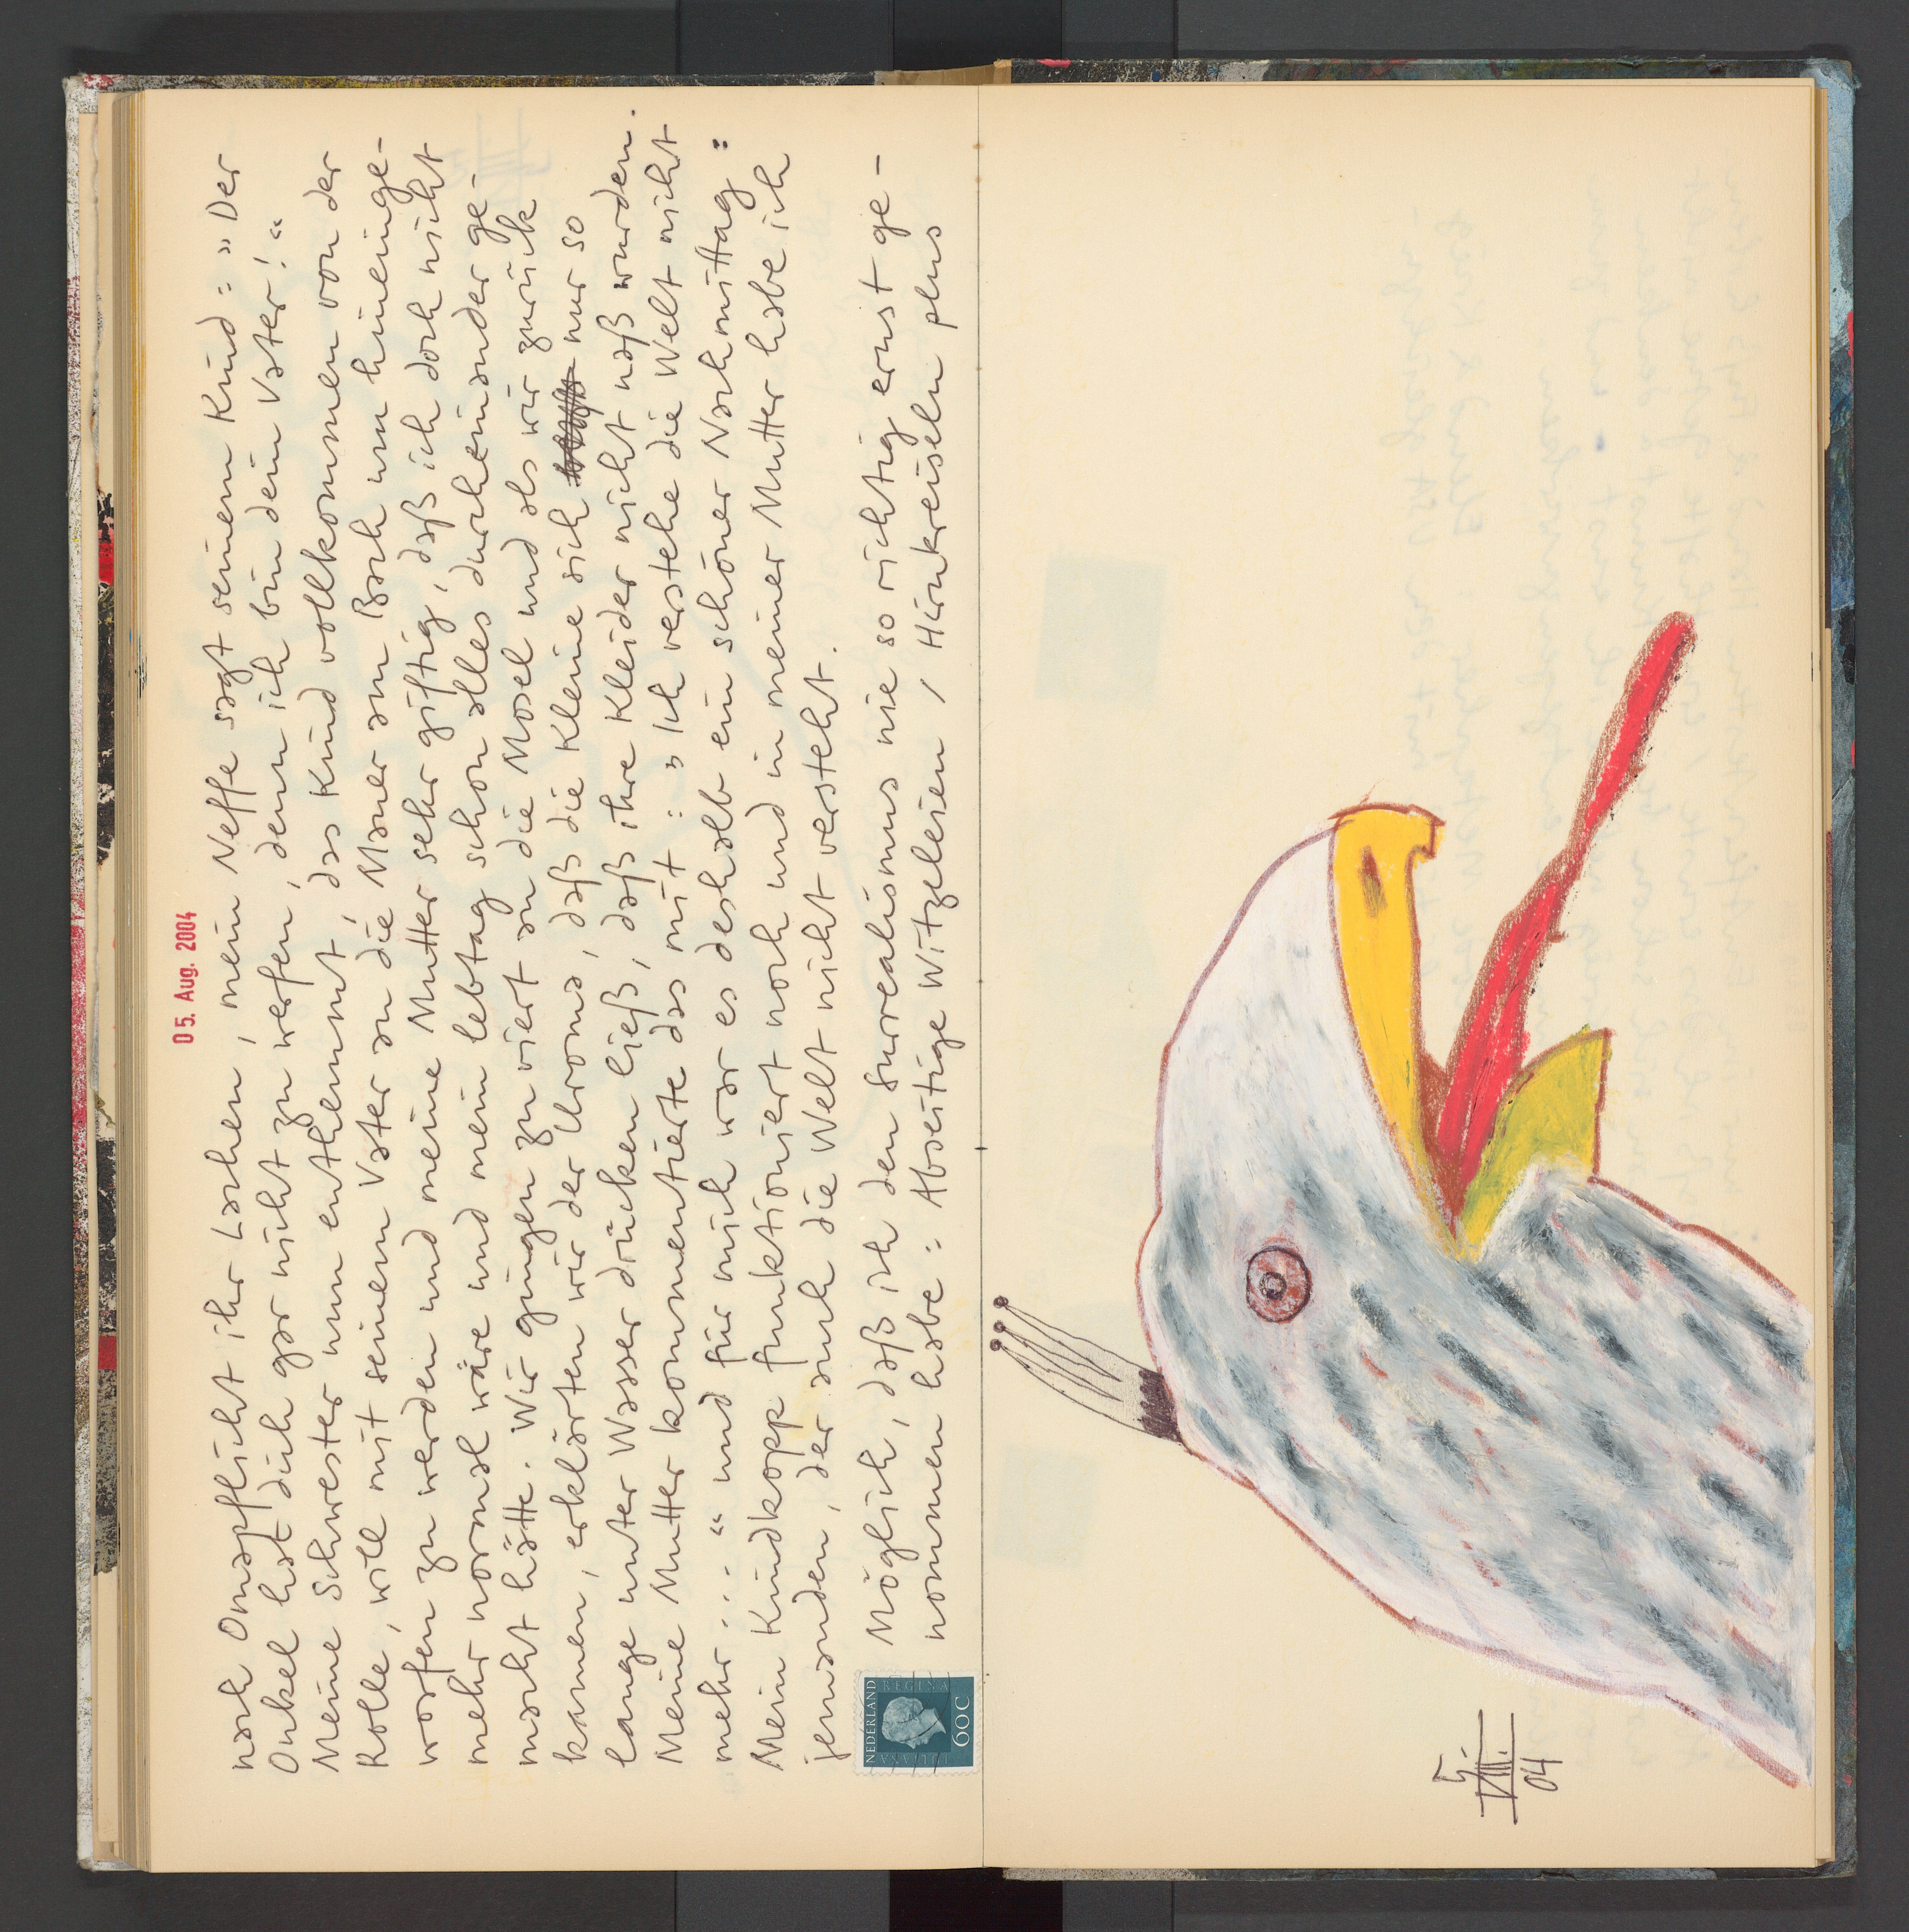 05. Aug. 2004
nach Omapflicht ihr Lachen, mein Neffe sagt seinem Kind: „Der
Onkel hat dich gar nicht zu werfen, denn ich bin dein Vater!“
Meine Schwester nun enthemmt, das Kind vollkommen von der
Rolle, will mit seinem Vater an die Mauer am Bach um hineinge-
worfen zu werden und meine Mutter sehr giftig, daß ich doch nicht
mehr normal wäre und mein Lebtag schon alles durcheinander ge-
macht hätte. Wir gingen zu viert an die Mosel und als wir zurück
kamen, erklärten wir der Uroma, daß die Kleine sich nur so
lange unter Wasser drücken ließ, daß ihre Kleider nicht naß wurden.
Meine Mutter kommentierte das mit: „Ich verstehe die Welt nicht
mehr...“ und für mich war es deshalb ein schöner Nachmittag:
Mein Kindkopp funktioniert noch und in meiner Mutter habe ich
jemanden, der auch die Welt nicht versteht.
Möglich, daß ich den Surrealismus nie so richtig ernst ge-
nommen habe: Abseitige Witzeleien, Hirnkreiseln plus
NEDERLAND
JULIANA REGINA
60c
5.
VIII.
04